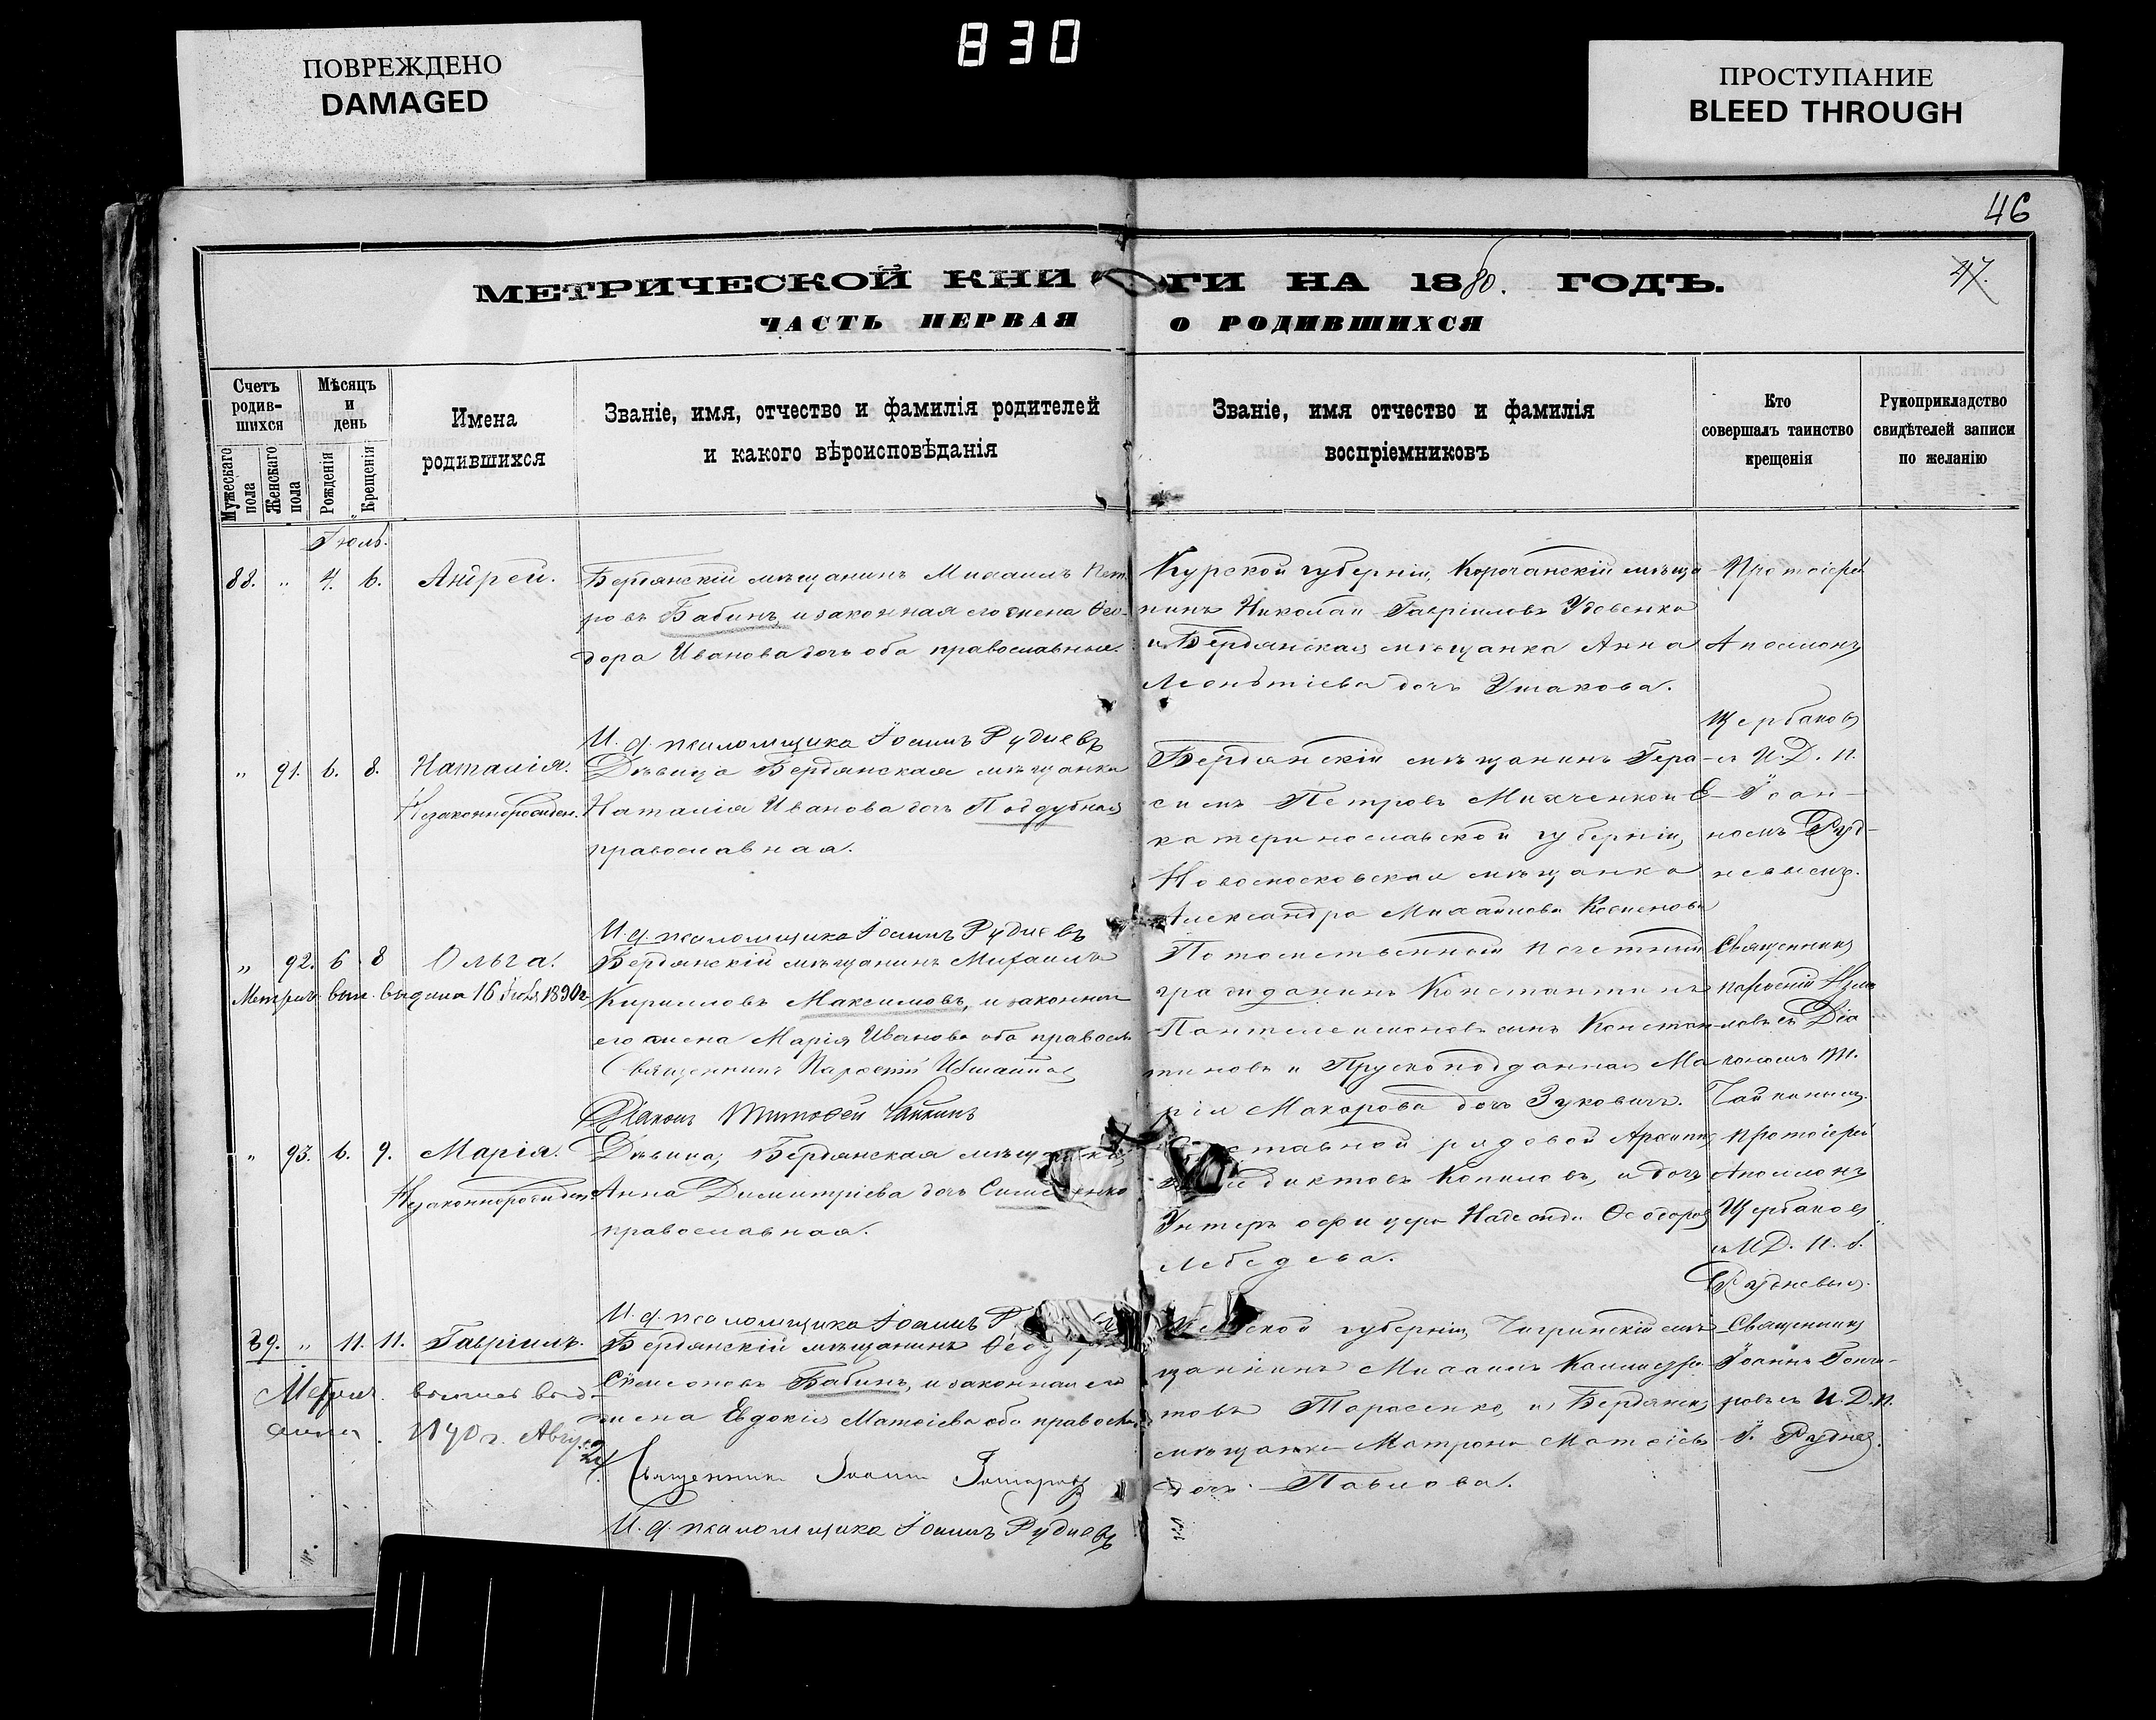 ПОВРЕЖДЕНО
DAMAGED
830
ПРОСТУПАНИЕ
BLEED THROUGH
46
47.
МЕТРИЧЕСКОЙ КНИГИ НА 1880. ГОДЪ.
ЧАСТЬ ПЕРВАЯ О РОДИВШИХСЯ
Счетъ родившихся
Мужескаго пола
Женскаго пола
Мѣсяцъ и день
Рожденія
Крещенія
Имена
родившихся
Званіе, имя, отчество и фамилія родителей
и какого вѣроисповѣданія
Званіе, имя отчество и фамилія
воспріемниковъ
Кто
совершалъ таинство
крещенія
Рукоприкладство
свидѣтелей записи
по желанію
Іюль.
88. " 4. 6. Андрей.
Бердянскій мѣщанинъ Михаилъ Пет
ровъ Бабинъ, и законная его жена Ѳео-
дора Иванова дочь оба православные.
И. д. псаломщика Іоаннъ Рудневъ
Курской губерніи, Корочанскій мѣща
нинъ Николай Гавріиловъ Удовенко
и Бердянская мѣщанка Анна
Леонтіева дочь Ушакова.
Протоіерей
Аполлонъ
Щербаковъ
съ И. Д. п.
Іоан-
номъ Руд-
невымъ.
" 91. 6. 8. Наталія.
Незаконнорожден.
Дѣвица Бердянская мѣщанка
Наталія Иванова дочь Поддубная
православная.
И. д. псаломщика Іоаннъ Рудневъ
Бердянскій мѣщанинъ Гера-
симъ Петровъ Михченко и Е-
катеринославской губерніи,
Новомосковская мѣщанка
Александра Михайлова
" 92. 6 8 Ольга.
Метрич. вып. выдана 16 1890 г.
Бердянскій мѣщанинъ Михаилъ
Кирилловъ Максимовъ, и законная
его жена Марія Иванова оба правосл
Священникъ
Діаконъ Тимофей Чайкинъ
Потомственный почетный
гражданинъ Константинъ
Пантелеимоновъ сынъ Констан
тиновъ и Прусскоподданная Ма
рія Макарова дочь Зуковичъ.
Священникъ
съ Діа
кономъ Т.
Чайкинымъ.
" 93. 6. 9. Марія.
Незаконнорожден.
Дѣвица, Бердянская мѣщанка
Анна Димитріева дочь
православная.
И. д. псаломщика Іоаннъ
рядовой Архипъ
Копиловъ, и дочь
Унтеръ офицера Надежда Ѳеодорова
Лебедева.
Протоіерей
Аполлонъ
Щербаковъ
съ И. Д. п. І.
Рудневымъ.
89. " 11. 11. Гавріилъ.
Метрич. выпись выд-
ана. 1890 г. Авгус.
24
Бердянскій мѣщанинъ
Сѵмеоновъ Бабинъ, и законная его
жена Евдокія Матѳіева оба правосл.
Священникъ Іоаннъ Гончаровъ
И. д. псаломщика Іоаннъ Рудневъ
губерніи, Чигринскій мѣ
щанинъ Михаилъ
товъ Тарасенко, и Бердянская
мѣщанка Матрона Матѳіева
дочь Павлова.
Священникъ
Іоаннъ Гонча-
ровъ съ И. Д. п.
І. Руднев.